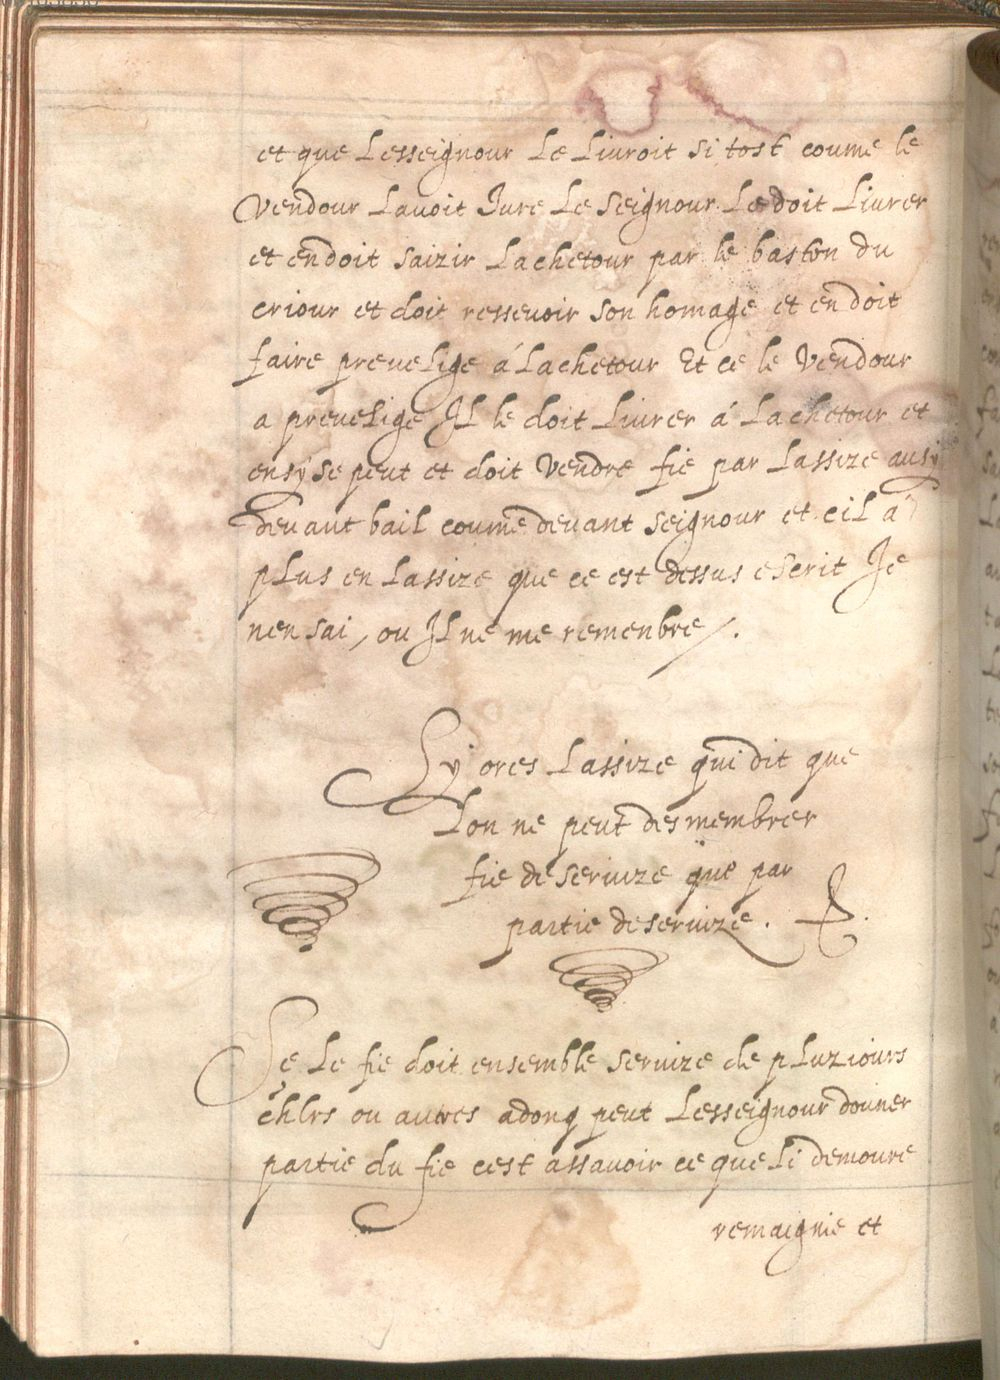 et que Lesseignour Le Livroit si tost coume le
Vendour Lavoit Jure Le Seignour Le doit Livrer
et en doit saizir Lachetour par le baston du
criour et doit ressevoir son homage et en doit
faire prevelige á Lachetour Et ce le Vendour
a prevelige Il le doit Livrer á Lachetour et
ensÿ se peut et doit Vendre fie par Lassize ausÿ
devant bail coume devant seignour et cil a
plus en Lassize que ce est dessus escrit Je
nen sai, ou Il ne me remenbre /.
Sy ores Lassize qui dit que
Lon ne peut desmembrer
fie de servize que par
partie de servize.
Se Le fie doit ensemble servize de pluziours
chlrs ou autres adonq peut Lesseignour donner
partie du fie cest assavoir ce que Li demoure
remaignie et